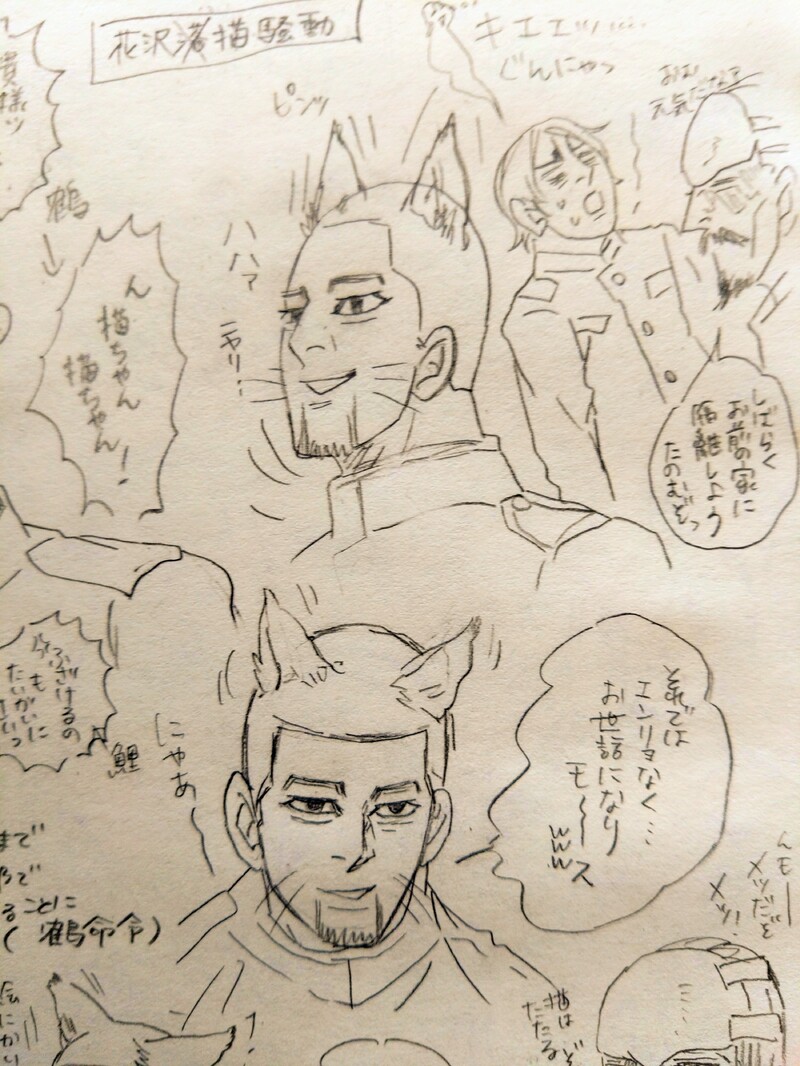 花沢落猫騒動
キエエッ…
ぐんにゃっ
おお
元気だなァ
貴様ッ
ピンッ
鶴
ん
猫ちゃん
猫ちゃん!
ハハァ
ニヤリ…
しばらく
お前の家に
隔離しよう
たのむぞっ
ふざけるの
も
たいがいに
鯉
にゃあ〜
それでは
エンリョなく…
お世話になり
モ〜〜ス
www
まで
ことに
(鶴命令)
んも〜
メッだぞ
メッ!
猫は
たたるぞ